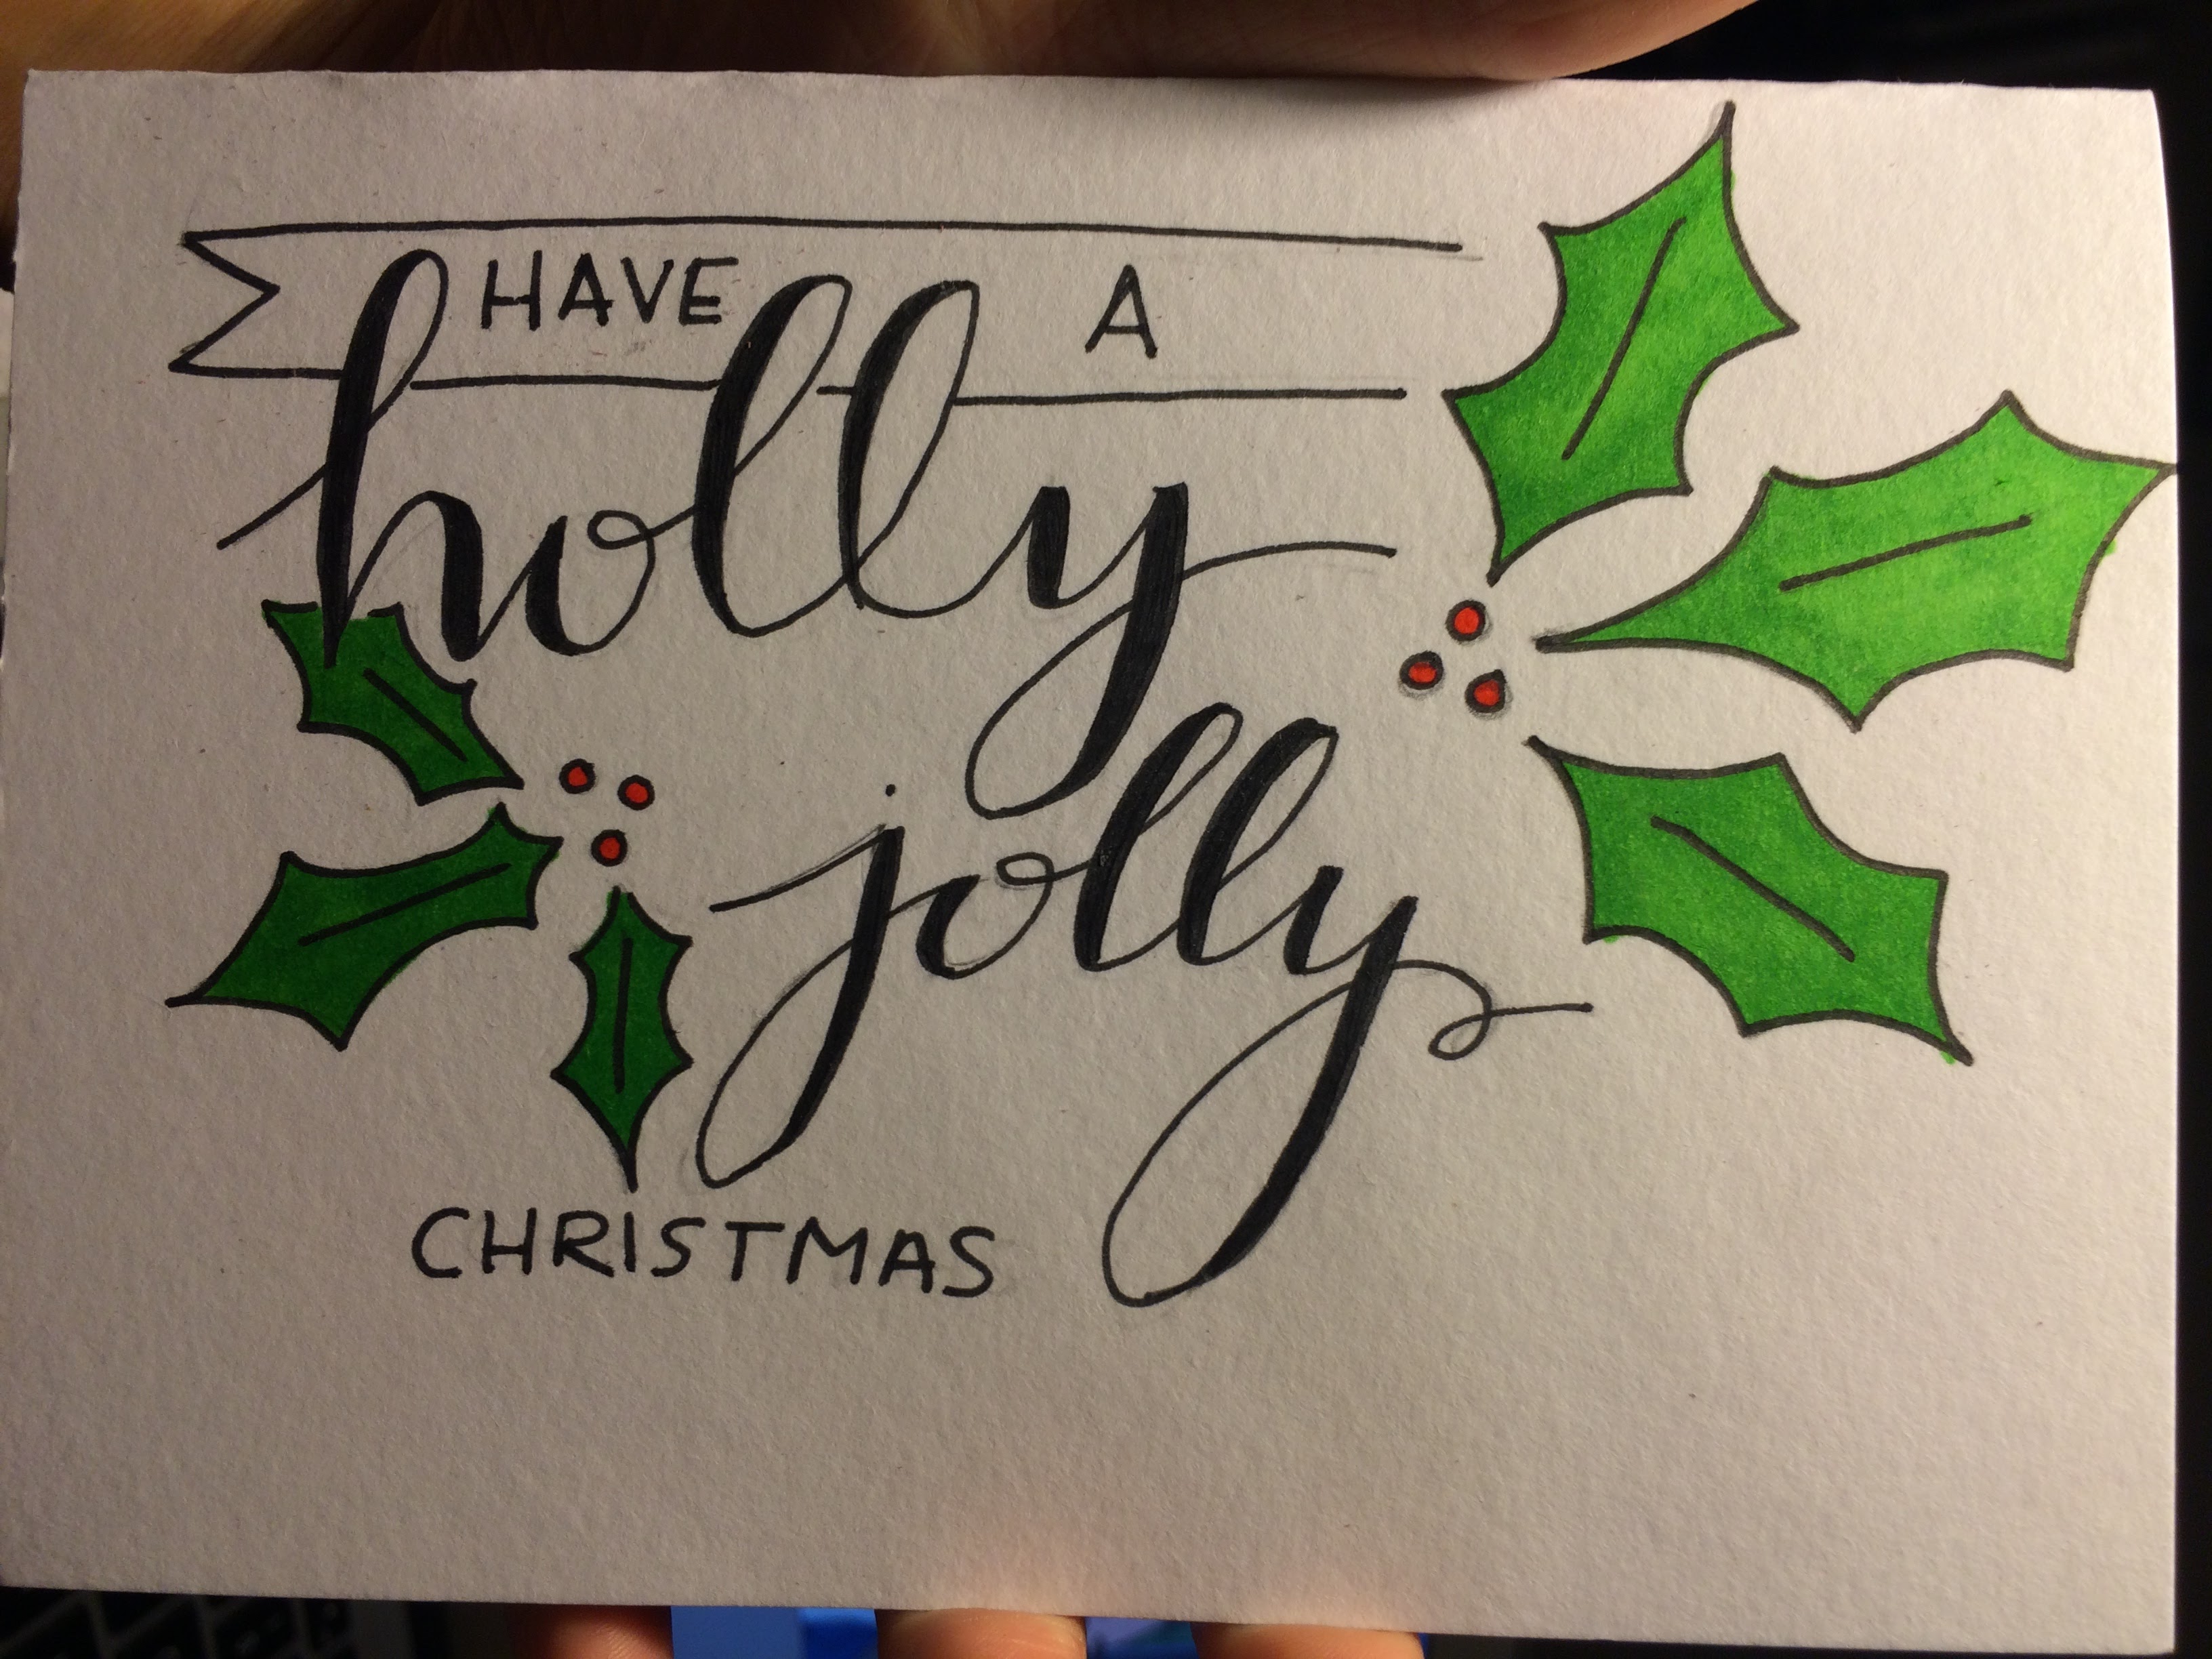 HAVE A
holly
jolly
CHRISTMAS